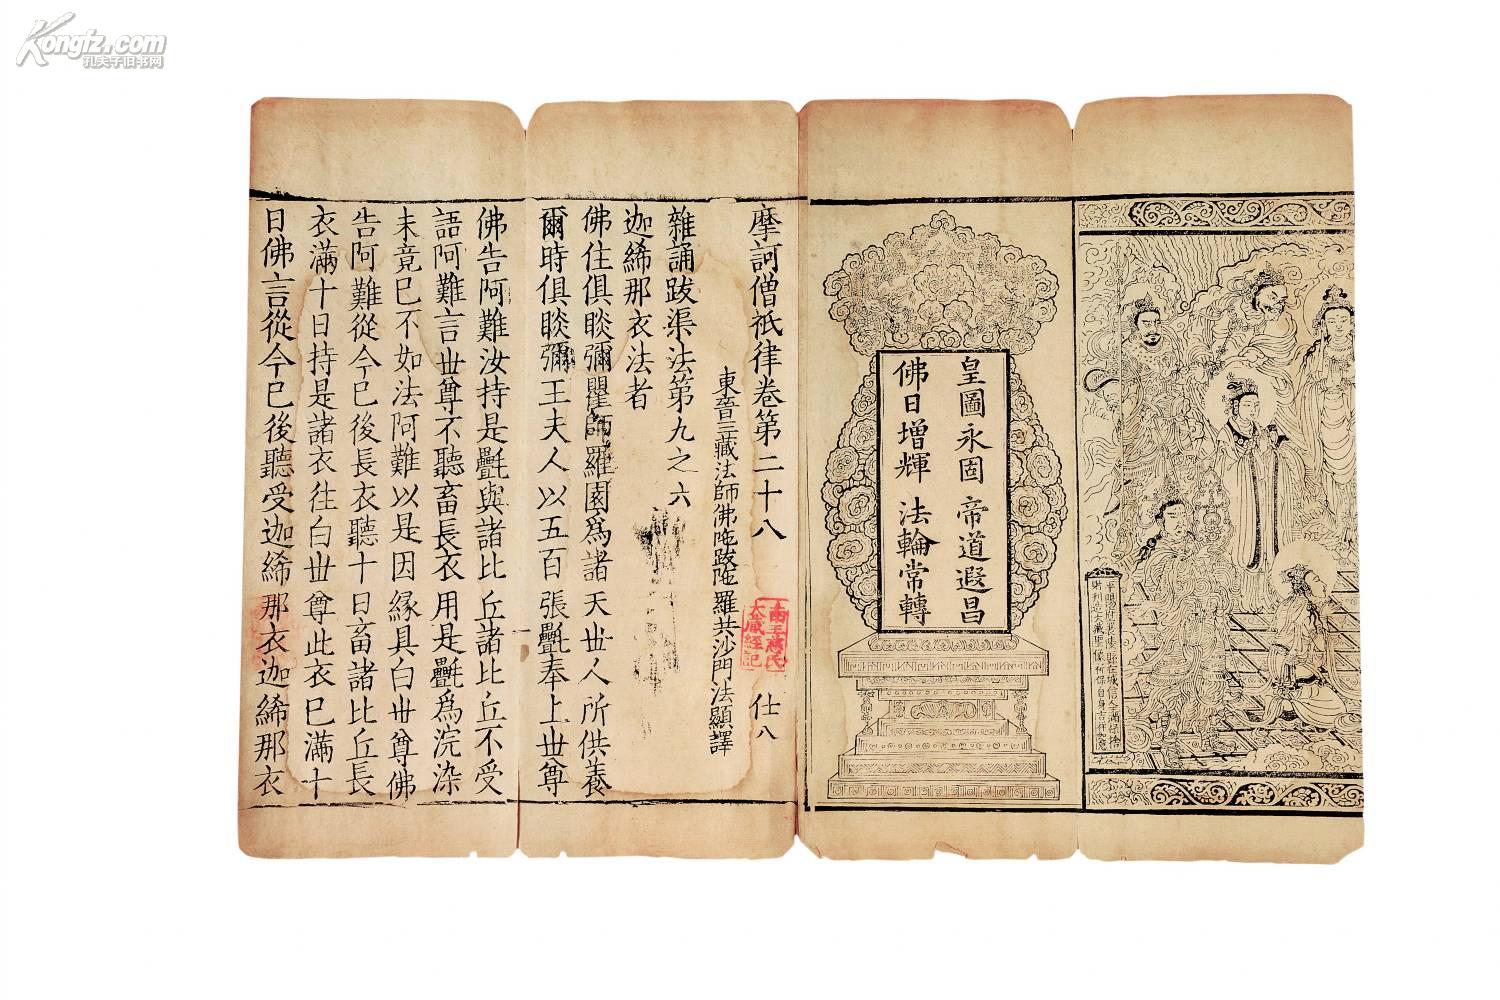 Kongfz.com
孔夫子旧书网
皇圖永固 帝道遐昌
佛日增輝 法輪常轉
摩訶僧祇律卷第二十八 仕八
東晉三藏法師佛陁跋陁羅共沙門法顯譯
雜誦跋渠法第九之六
迦絺那衣法者
佛住俱睒彌瞿師羅園爲諸天世人所供養
爾時俱睒彌王夫人以五百張㲲奉上世尊
佛告阿難汝持是㲲與諸比丘諸比丘不受
語阿難言世尊不聽畜長衣用是㲲爲浣染
未竟已不如法阿難以是因縁具白世尊佛
告阿難從今已後長衣聽十日畜諸比丘長
衣滿十日持是諸衣往白世尊此衣已滿十
日佛言從今已後聽受迦絺那衣迦絺那衣